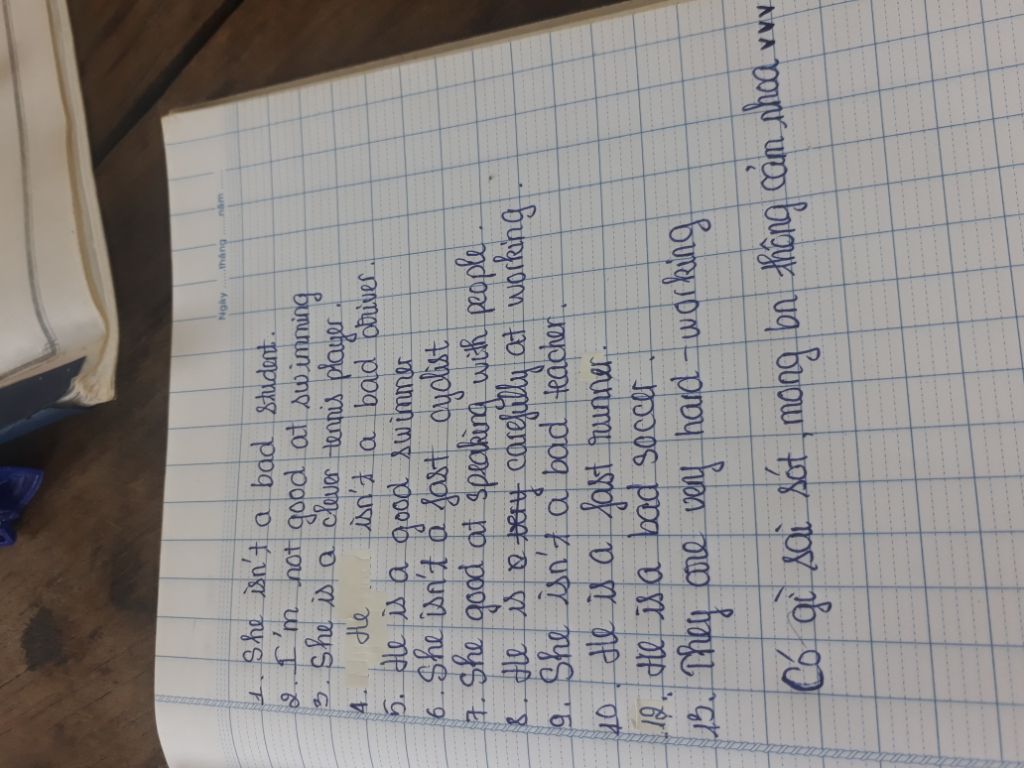 Ngày ..... tháng ..... năm
1. She isn't a bad student.
2. I'm not good at swimming
3. She is a clever tennis player.
4. He isn't a bad driver.
5. He is a good swimmer
6. She isn't a fast cyclist
7. She good at speaking with people.
8. He is a very carefully at working.
9. She isn't a bad teacher.
10. He is a fast runner.
12. He is a bad soccer.
13. They are very hard-working
Có gì sai sót, mong bn thông cảm nhoa vvv